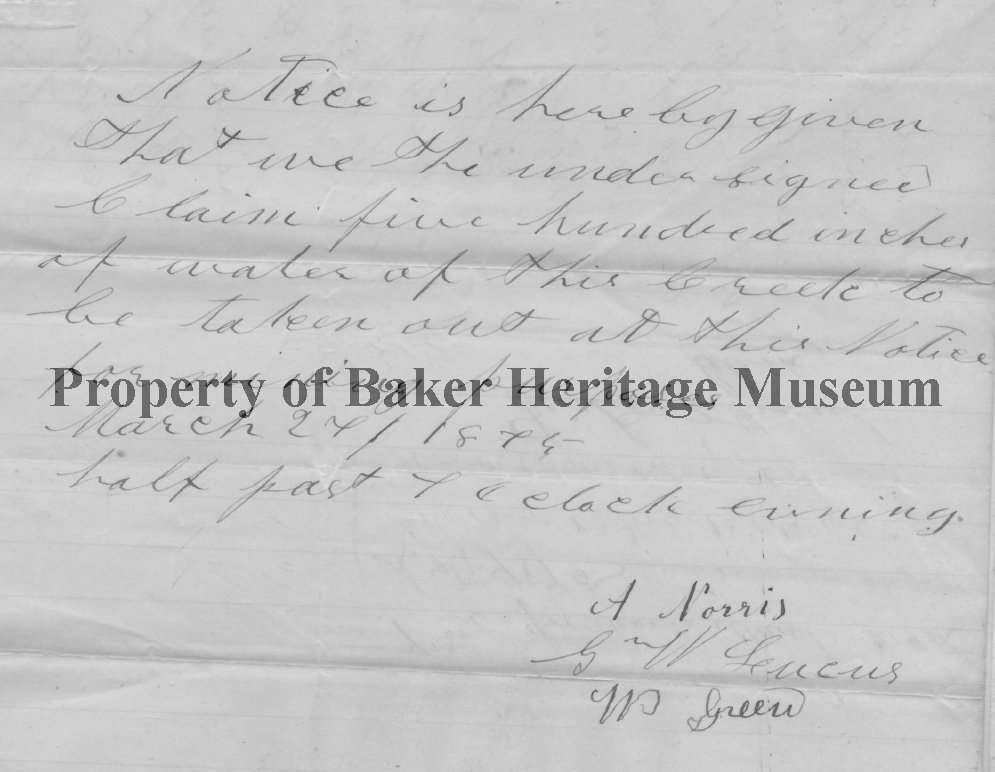 Notice is hereby given
that we the undersigned
Claim five hundred inches
of water of this Creek to
be taken out at this Notice
for mining purposes
Property of Baker Heritage Museum
March 24/ 1875
half past 4 o clock evning.
A Norris
W Lucus
W Green